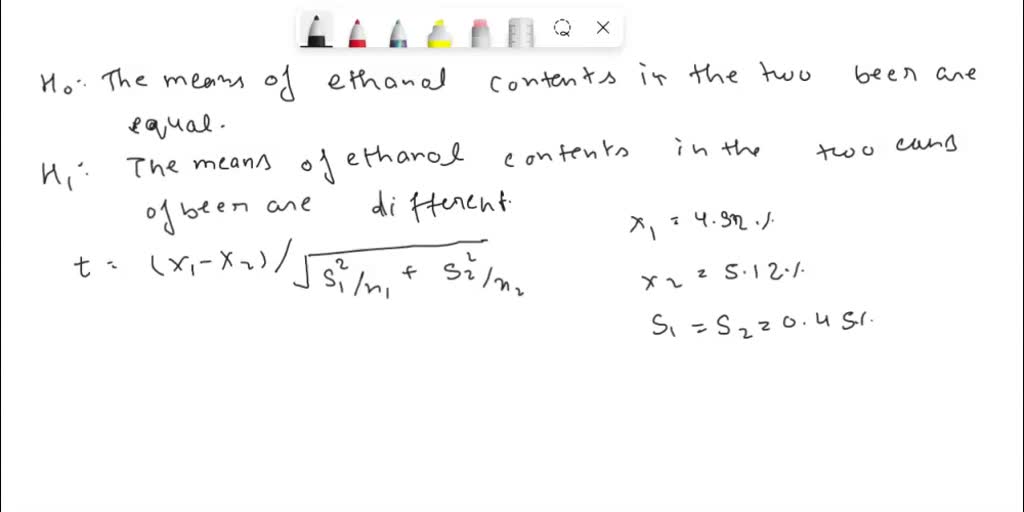 H₀: The means of ethanol contents in the two beer are
equal.
H₁: The means of ethanol contents in the two cans
of beer are different.
t = (x₁-x₂)/√(S₁²/n₁ + S₂²/n₂)
x₁ = 4.92%
x₂ = 5.12%
S₁ = S₂ = 0.45%